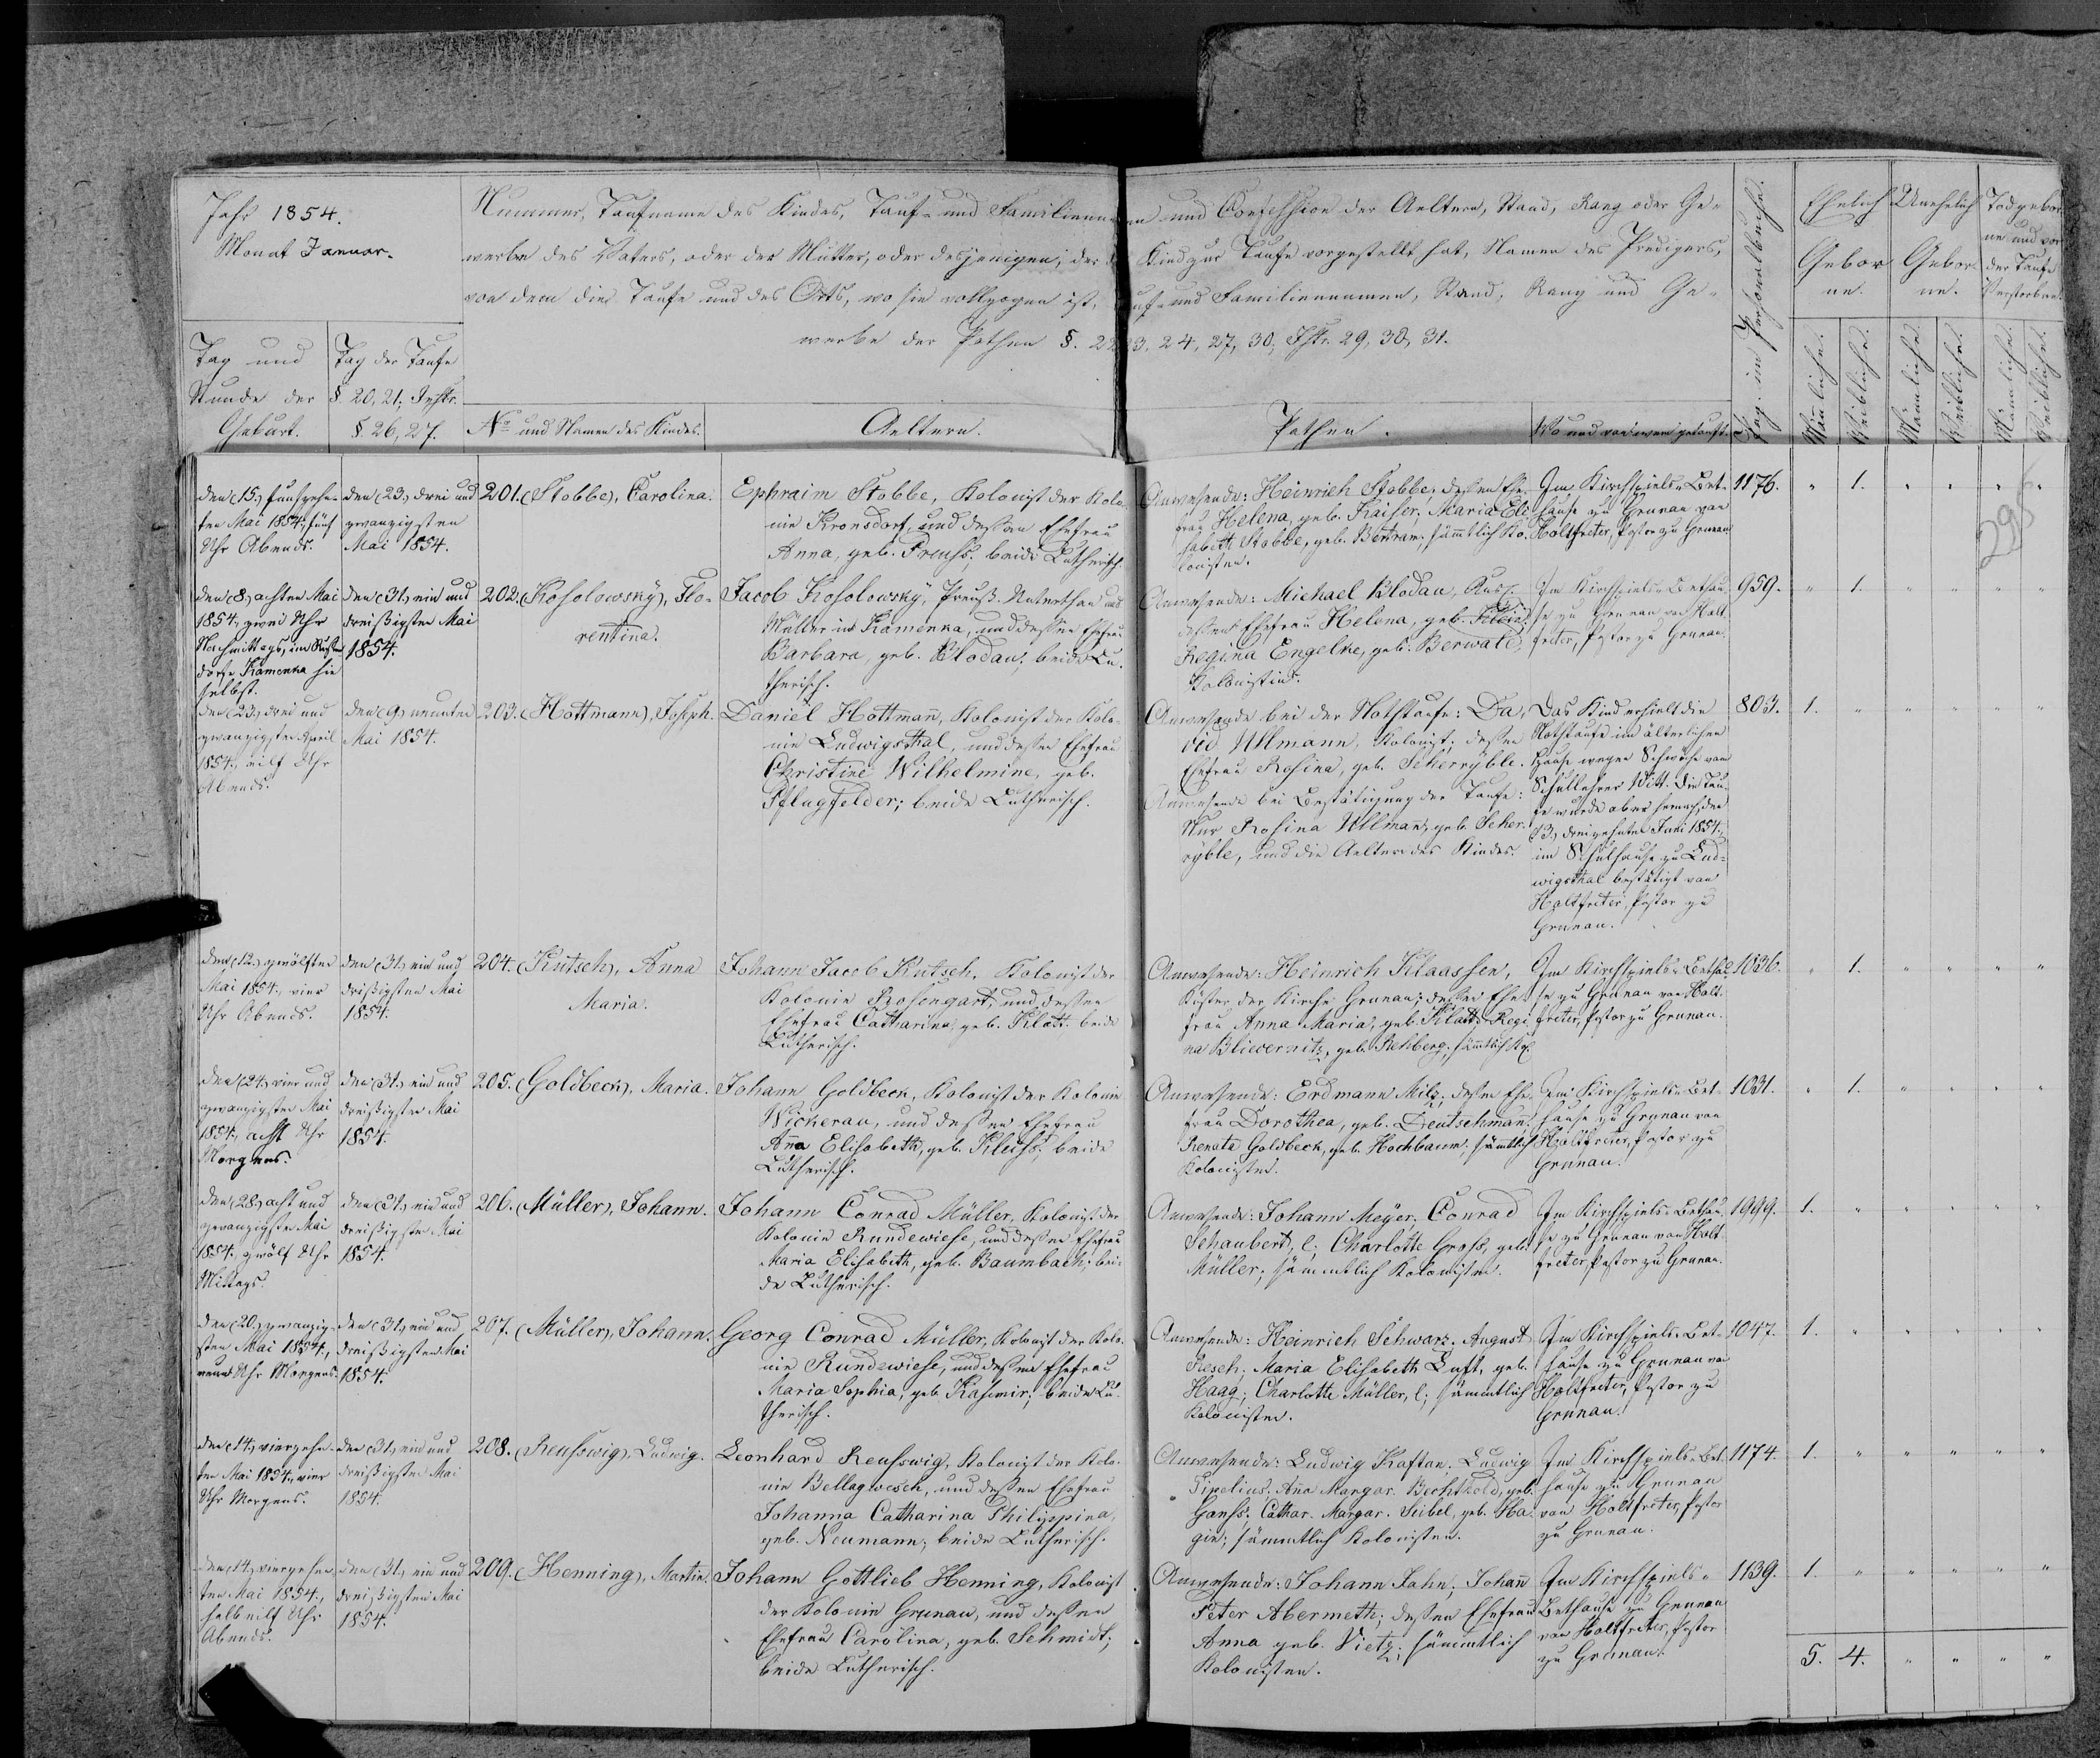 Jahr 1854.
Monat Januar.
Nummer, Taufname des Kindes, Tauf- und Familiennamen und Confession der Aeltern, Stand, Rang oder Ge-
werbe des Vaters, oder der Mutter, oder desjenigen, der das Kind zur Taufe vorgestellt hat, Namen des Predigers,
von dem die Taufe und des Orts, wo sie vollzogen ist, Tauf- und Familiennamen, Stand, Rang und Ge-
werbe der Pathen §. 22, 23, 24, 27, 30, Istr. 29, 30, 31.
Tag und
Stunde der
Geburt.
Tag der Taufe
§. 20, 21; Instr.
§. 26, 27.
No und Namen des Kindes.
Aeltern.
Pathen.
Wo und von wem getauft.
Pag. im Personalbuche.
Ehelich
Gebor
ne.
Unehelich
Gebor
ne.
Todgebor
ne und vor
der Taufe
Verstorben.
Männliche.
Weibliche.
Männliche.
Weibliche.
Männliche.
Weibliche.
295
den (15.) fünfzehn-
ten Mai 1854., fünf
Uhr Abends.
den (23.) drei und
zwanzigsten
Mai 1854.
201. (Stobbe), Carolina.
Ephraim Stobbe, Kolonist der Kolo-
nie Kronsdorf, und dessen Ehefrau
Anna, geb. Preuss; beide Lutherisch.
Anwesende: Heinrich Stobbe, dessen Ehe-
frau Helena, geb. Kaiser, Maria Eli-
sabeth Stobbe, geb. Bertram, sämmtlich Ko-
lonisten.
Im Kirchspiels-Bet-
hause zu Grunau von
Holtfreter, Pastor zu Grunau
1176. " 1. " " " "
den (8.) achten Mai
1854., zwei Uhr
Nachmittags, im Russen-
dorfe Kamenka hie-
selbst.
den (31.) ein und
dreißigsten Mai
1854.
202. (Kosolowsky), Flo-
rentina.
Jacob Kosolowsky, Preuß. Unterthan und
Müller in Kamenka, und dessen Ehefrau
Barbara, geb. Blodau; beide Lu-
therisch.
Anwesende: Michael Blodau,
dessen Ehefrau Helena, geb. Klein;
Regina Engelke, geb. Berwald;
Kolonistin.
Im Kirchspiels-Bethau-
se zu Grunau von Holt-
freter, Pastor zu Grunau.
959. " 1. " " " "
den (23.) drei und
zwanzigsten April
1854., eilf Uhr
Abends.
den (9.) neunten
Mai 1854.
203. (Hottmann), Joseph.
Daniel Hottmann, Kolonist der Kolo-
nie Ludwigsthal, und dessen Ehefrau
Christine Wilhelmine, geb.
Pflugfelder; beide Lutherisch.
Anwesende bei der Nothtaufe: Da-
vid Ullmann, Kolonist; dessen
Ehefrau Rosina, geb. Scherryble.
Anwesende bei Bestätigung der Taufe:
Nur Rosina Ullmann, geb. Scher-
ryble, und die Aeltern des Kindes.
Das Kind erhielt die
Nothtaufe im älterlichen
Hause wegen Schwäche vom
Schullehrer Witt. Die Tau-
fe wurde aber hernach, den
(13.) dreizehnten Juni 1854.,
im Schulhause zu Lud-
wigsthal bestätigt von
Holtfreter, Pastor zu
Grunau.
803. 1. " " " " "
den (12.) zwölften
Mai 1854., vier
Uhr Abends.
den (31.) ein und
dreißigsten Mai
1854.
204. (Kutsch), Anna
Maria.
Johann Jacob Kutsch, Kolonist der
Kolonie Rosengart, und dessen
Ehefrau Catharina, geb. Klatt; beide
Lutherisch.
Anwesende: Heinrich Klaassen,
Küster der Kirche Grunau; dessen Ehe-
frau Anna Maria, geb. Klatt; Regi-
na Blievernitz, geb. Rehberg; sämmtlich Kol.
Im Kirchspiels-Bethau-
se zu Grunau von Holt-
freter, Pastor zu Grunau.
1036. " 1. " " " "
den (24.) vier und
zwanzigsten Mai
1854., acht Uhr
Morgens.
den (31.) ein und
dreißigsten Mai
1854.
205. (Goldbeck), Maria.
Johann Goldbeck, Kolonist der Kolonie
Wickerau, und dessen Ehefrau
Anna Elisabeth, geb. Kleiss; beide
Lutherisch.
Anwesende: Erdmann Milz; dessen Ehe-
frau Dorothea, geb. Deutschman;
Renate Goldbeck, geb. Hochbaum; sämtlich
Kolonisten.
Im Kirchspiels-Bet-
hause zu Grunau von
Holtfreter, Pastor zu
Grunau.
1031. " 1. " " " "
den (28.) acht und
zwanzigsten Mai
1854., zwölf Uhr
Mittags.
den (31.) ein und
dreißigsten Mai
1854.
206. (Müller), Johann.
Johann Conrad Müller, Kolonist der
Kolonie Rundewiese, und dessen Ehefrau
Maria Elisabeth, geb. Baumbach; bei-
de Lutherisch.
Anwesende: Johann Meyer; Conrad
Schaubert, l; Charlotte Gross, geb.
Müller; sämmtlich Kolonisten.
Im Kirchspiels-Bethau-
se zu Grunau von Holt-
freter, Pastor zu Grunau.
1999. 1. " " " " "
den (20.) zwanzig-
sten Mai 1854.,
neun Uhr Morgens.
den (31.) ein und
dreißigsten Mai
1854.
207. (Müller), Johann.
Georg Conrad Müller, Kolonist der Kolo-
nie Rundewiese, und dessen Ehefrau
Maria Sophia, geb. Kasimir; beide Lu-
therisch.
Anwesende: Heinrich Schwarz, August
Resch; Maria Elisabeth Luft, geb.
Haag; Charlotte Müller, l; sämmtlich
Kolonisten.
Im Kirchspiels-Bet-
hause zu Grunau von
Holtfreter, Pastor zu
Grunau.
1047. 1. " " " " "
den (14.) vierzehn-
ten Mai 1854., vier
Uhr Morgens.
den (31.) ein und
dreißigsten Mai
1854.
208. (Reusswig), Ludwig.
Leonhard Reusswig, Kolonist der Kolo-
nie Bellagwesch, und dessen Ehefrau
Johanna Catharina Philippina,
geb. Neumann; beide Lutherisch.
Anwesende: Ludwig Kaftan; Ludwig
Sipelius; Anna Margar. Bechthold, geb.
Ganss; Cathar. Margar. Seibel, geb. Ha-
gin; sämmtlich Kolonisten.
Im Kirchspiels-Bet-
hause zu Grunau
von Holtfreter, Pastor
zu Grunau.
1174. 1. " " " " "
den (14.) vierzehn-
ten Mai 1854.,
halb eilf Uhr
Abends.
den (31.) ein und
dreißigsten Mai
1854.
209. (Henning), Martin.
Johann Gottlieb Henning, Kolonist
der Kolonie Grunau, und dessen
Ehefrau Carolina, geb. Schmidt;
beide Lutherisch.
Anwesende: Johann Jahn; Johann
Peter Abermeth; dessen Ehefrau
Anna geb. Vietz; sämmtlich
Kolonisten.
Im Kirchspiels-
Bethause zu Grunau
von Holtfreter, Pastor
zu Grunau.
1139. 1. " " " " "
5. 4. " " " "